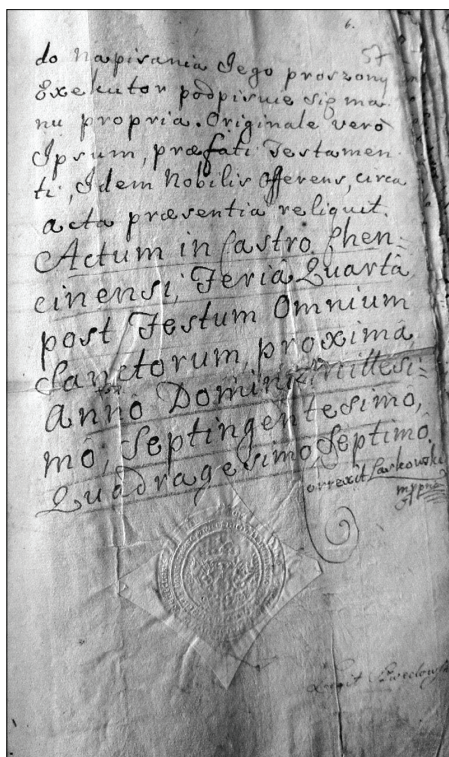 6.
57
do napisania Jego proszony
Exekutor podpisuie się ma
nu propria. Originale verò
Ipsum, præfati Testamen
ti, Idem Nobilis Offerens, circa
acta præsentia reliquit.
Actum in Castro Chen:
cinensi, Feriâ Quartâ
post Festum Omnium
Sanctorum, proximâ
Annô Domini millesi:
mô, Septingentesimô,
Quadragesimô Septimô.
Correxit
mppria
Legit